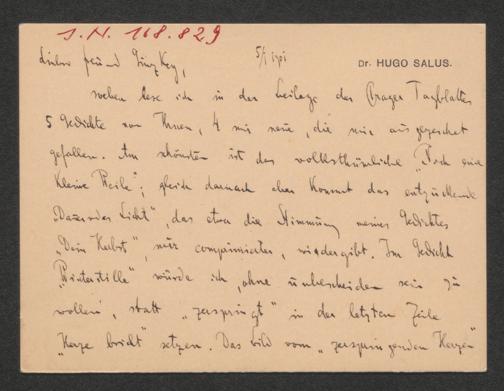 J.N. 168.829
5/I 1901
Dr. HUGO SALUS.
Lieber Freund Ginzkey,
soeben lese ich in der Beilage des Prager Tagblattes
5 Gedichte von Ihnen, 4 mir neue, die mir ausgezeichnet
gefallen. Am schönsten ist das volksthümliche „Noch eine
kleine Weile“; gleich darnach aber kommt das entzückende
Licht“, das etwa die Stimmung meines Gedichtes
„Dein Herbst“, nur comprimierter, wiedergibt. Im Gedicht
„Winterstille“ würde ich, ohne unbescheiden sein zu
wollen, statt „zerspringt“ in der letzten Zeile
„Kerze bricht“ setzen. Das Bild vom „zerspringenden Herzen“